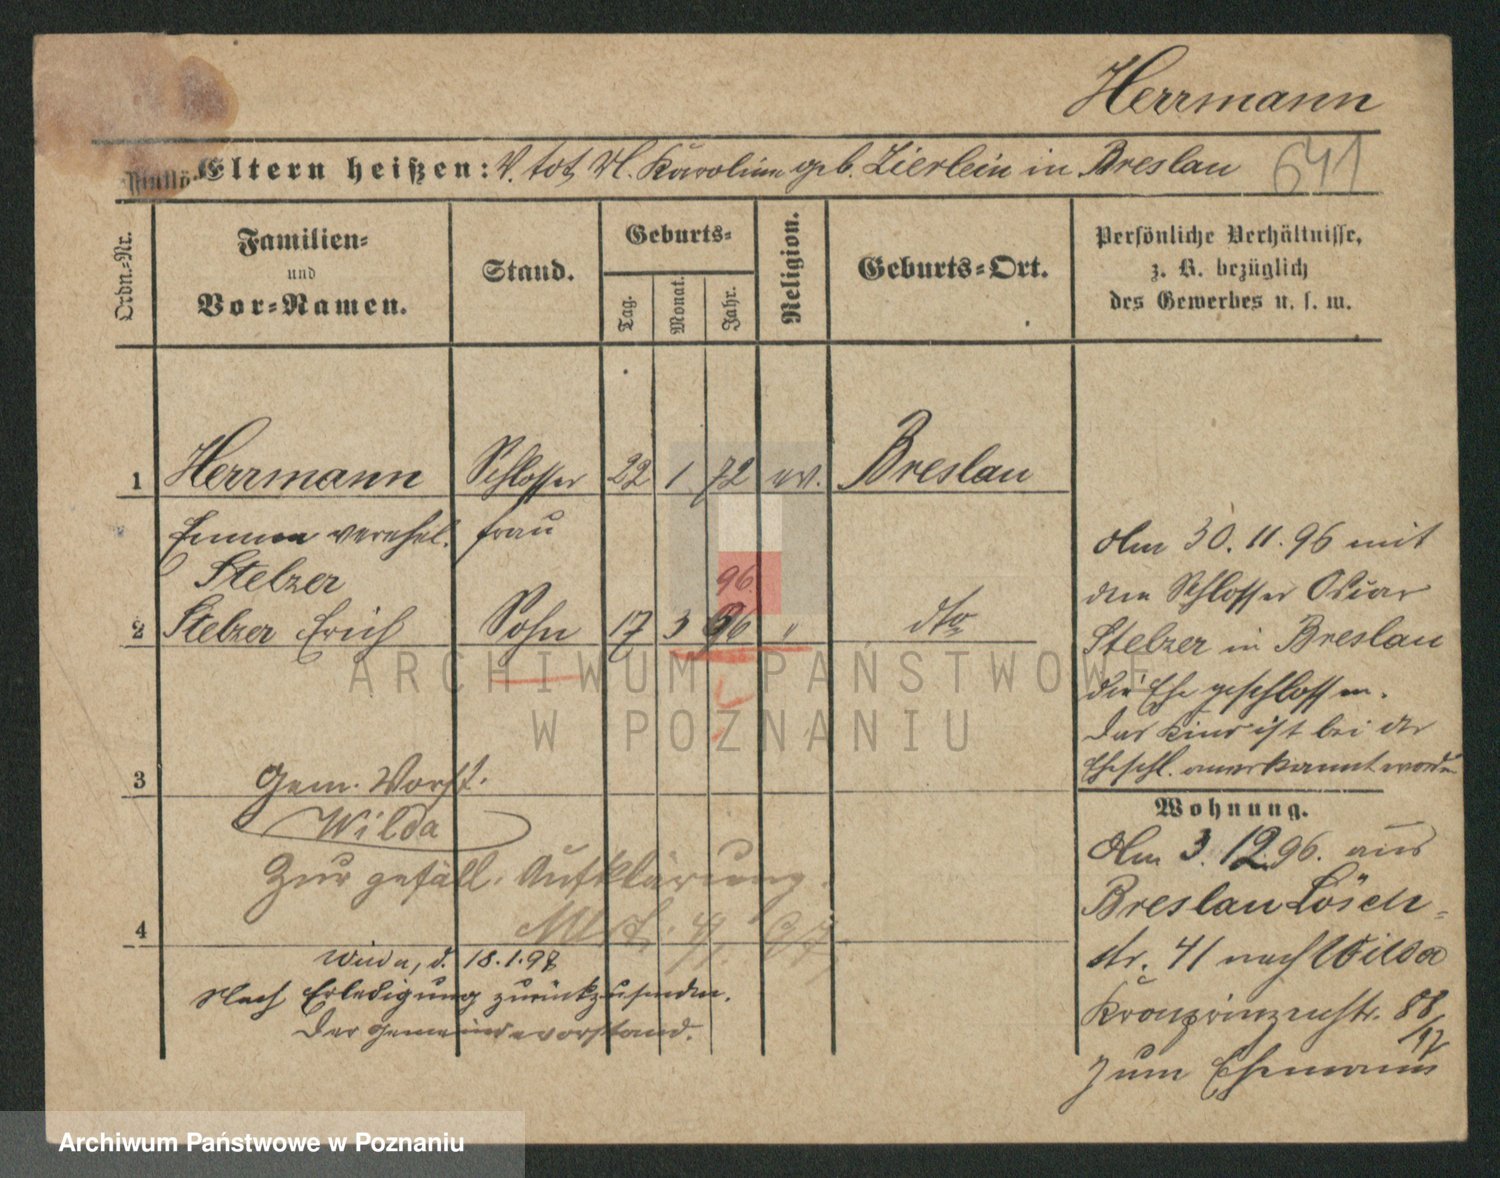 Herrmann
Eltern heißen: V. tot, M. Karoline geb. Zierlein in Breslau
641
Ordn.-Nr.
Familien-
und
Vor-Namen.
Stand.
Geburts-
Tag.
Monat.
Jahr.
Religion.
Geburts-Ort.
Persönliche Verhältnisse,
z. B. bezüglich
des Gewerbes u. s. w.
1 Herrmann Schlosser 22 1 72 ev. Breslau
Emma verehel. frau
Stelzer
96.
2 Stelzer Erich Sohn 17 3 96 " dto
3
4
Gem. Vorst.
Wilda
Zur gefäll. Aufklärung.
Wilda, d. 18.1.97
Nach Erledigung zurückzusenden.
Der Gemeindevorstand.
Am 30.11.96 mit
dem Schlosser Oscar
Stelzer in Breslau
die Ehe geschlossen.
Das Kind ist bei der
Eheschl. anerkannt worden
Wohnung.
Am 3.12.96. aus
Breslau Lösch-
str. 41 nach Wilda
Kronprinzenstr. 88
/97
zum Ehemann
ARCHIWUM PAŃSTWOWE
W POZNANIU
Archiwum Państwowe w Poznaniu